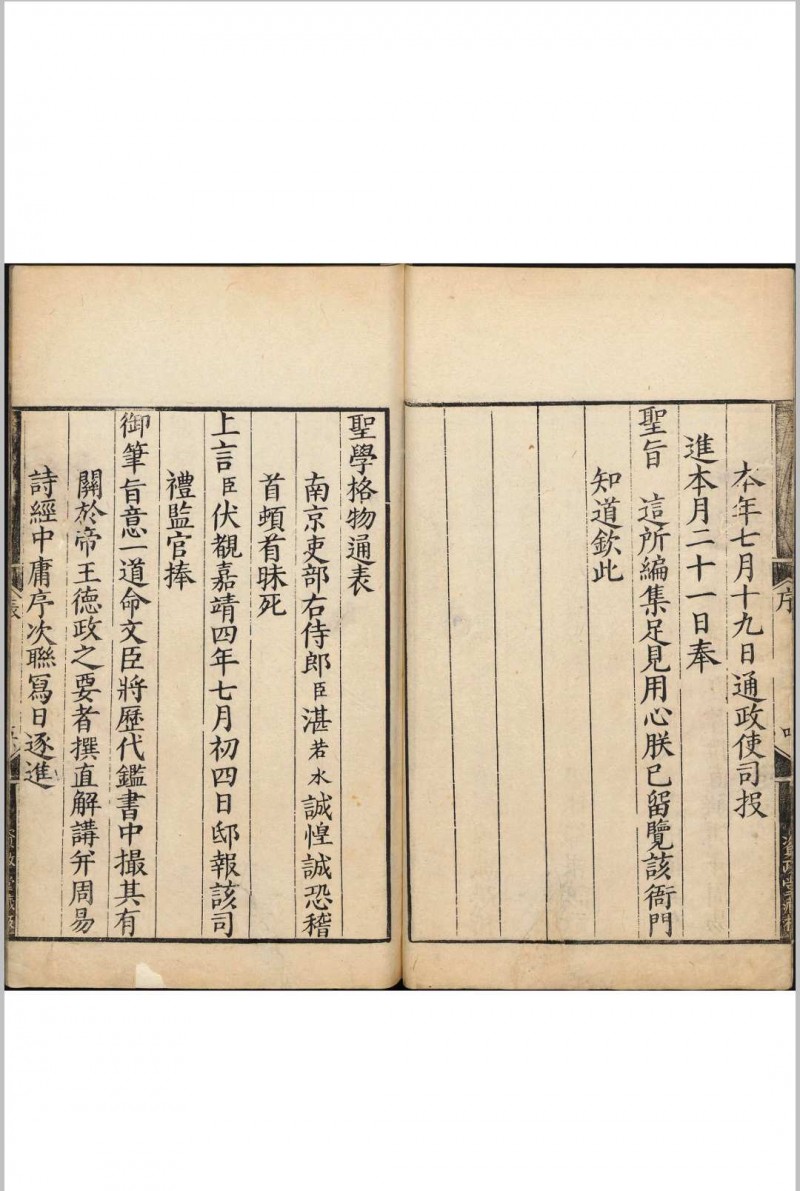 本年七月十九日通政使司报
進本月二十一日奉
聖旨 這所編集足見用心朕已留覽該衙門
知道欽此
序
資政堂藏板
聖學格物通表
南京吏部右侍郎臣湛若水誠惶誠恐稽
首頓首昧死
上言臣伏覩嘉靖四年七月初四日邸報該司
禮監官捧
御筆旨意一道命文臣將歷代鑑書中撮其有
關於帝王德政之要者撰直解講并周易
詩經中庸序次聯寫日逐進
表